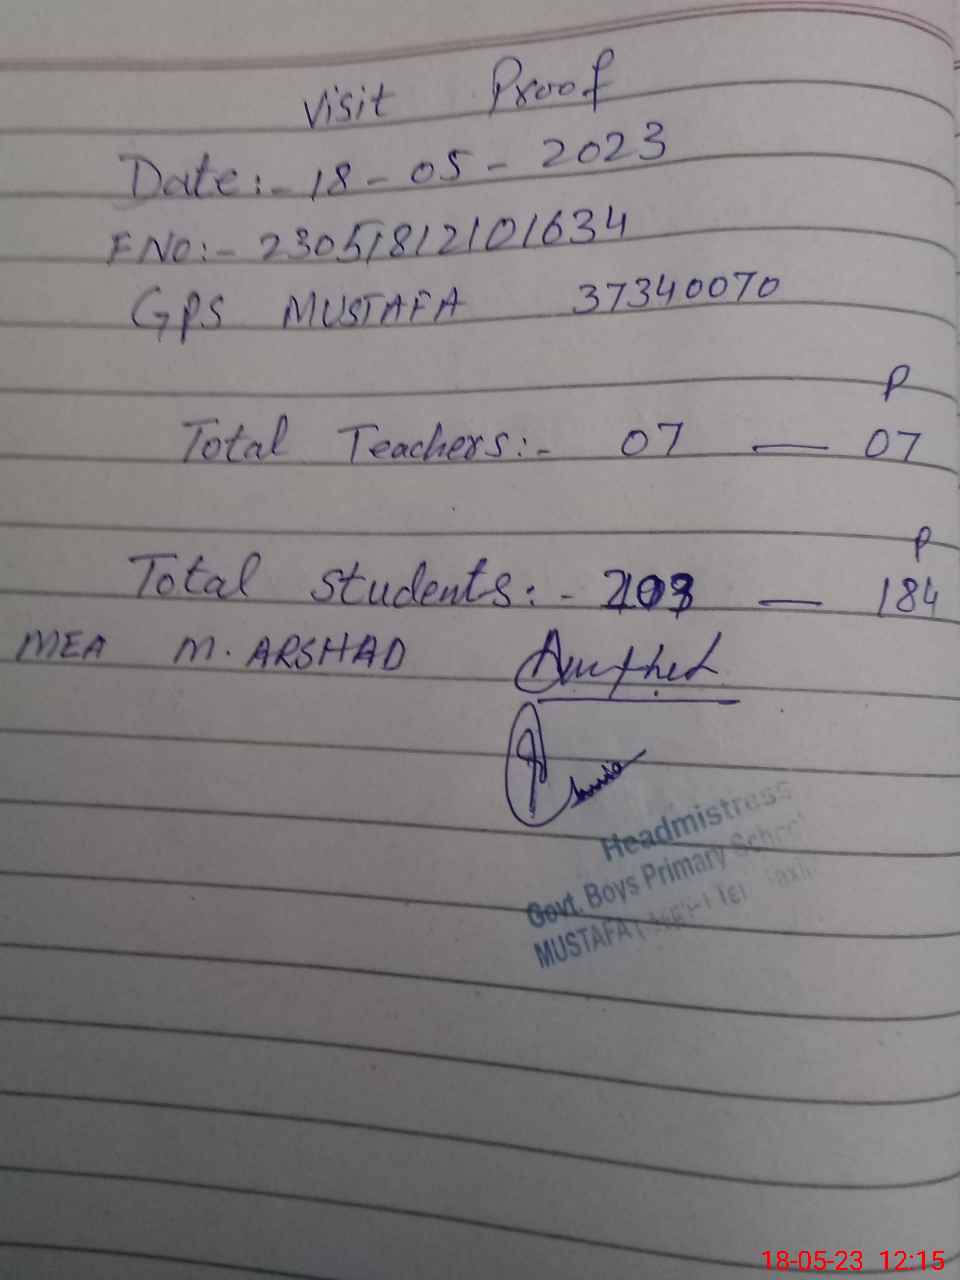 Visit Proof
Date:- 18-05-2023
FNO:- 23051812101634
GPS MUSTAFA 37340070
P
Total Teachers:- 07 — 07
P
Total Students:- — 184
MEA M. ARSHAD
Headmistress
Govt. Boys Primary School
MUSTAFA
18-05-23 12:15